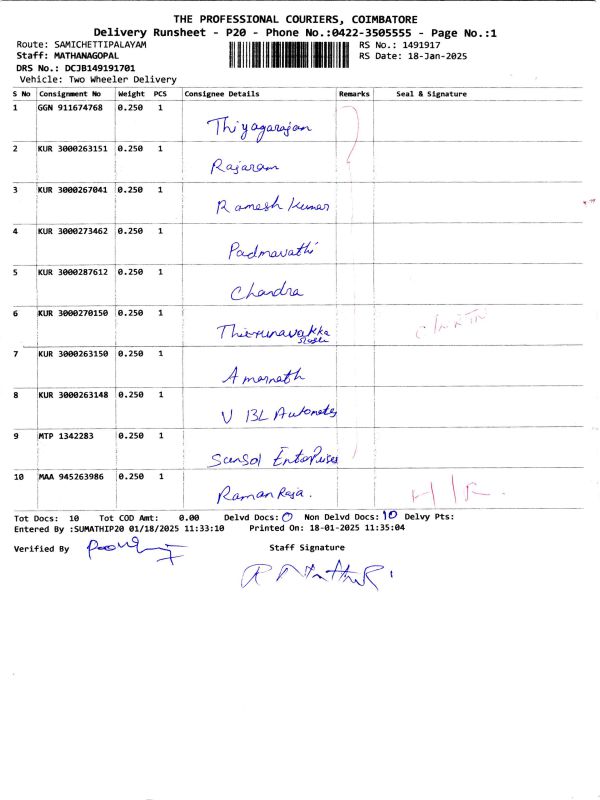 THE PROFESSIONAL COURIERS, COIMBATORE
Delivery Runsheet - P20 - Phone No.:0422-3505555 - Page No.:1
Route: SAMICHETTIPALAYAM RS No.: 1491917
Staff: MATHANAGOPAL RS Date: 18-Jan-2025
DRS No.: DCJB149191701
Vehicle: Two Wheeler Delivery
S No Consignment No Weight PCS Consignee Details Remarks Seal & Signature
1 GGN 911674768 0.250 1
Thiyagarajan
2 KUR 3000263151 0.250 1
Rajaram
3 KUR 3000267041 0.250 1
Ramesh Kumar
4 KUR 3000273462 0.250 1
Padmavathi
5 KUR 3000287612 0.250 1
Chandra
6 KUR 3000270150 0.250 1
Thirunavakka
7 KUR 3000263150 0.250 1
Amarnath
8 KUR 3000263148 0.250 1
V BL
9 MTP 1342283 0.250 1
Sansol Enterprises
10 MAA 945263986 0.250 1
Raman Raja.
Tot Docs: 10 Tot COD Amt: 0.00 Delvd Docs: 0 Non Delvd Docs: 10 Delvy Pts:
Entered By :SUMATHIP20 01/18/2025 11:33:10 Printed On: 18-01-2025 11:35:04
Verified By Staff Signature